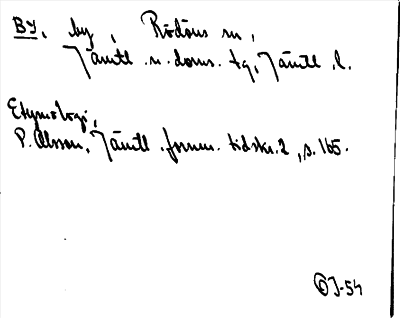 BY, by, Rödöns sn,
Jämtl. n. doms. tg, Jämtl. l.
Etymologi,
P. Olsson, Jämtl. fornm. tidskr. 2, s. 165.
ÖJ-54